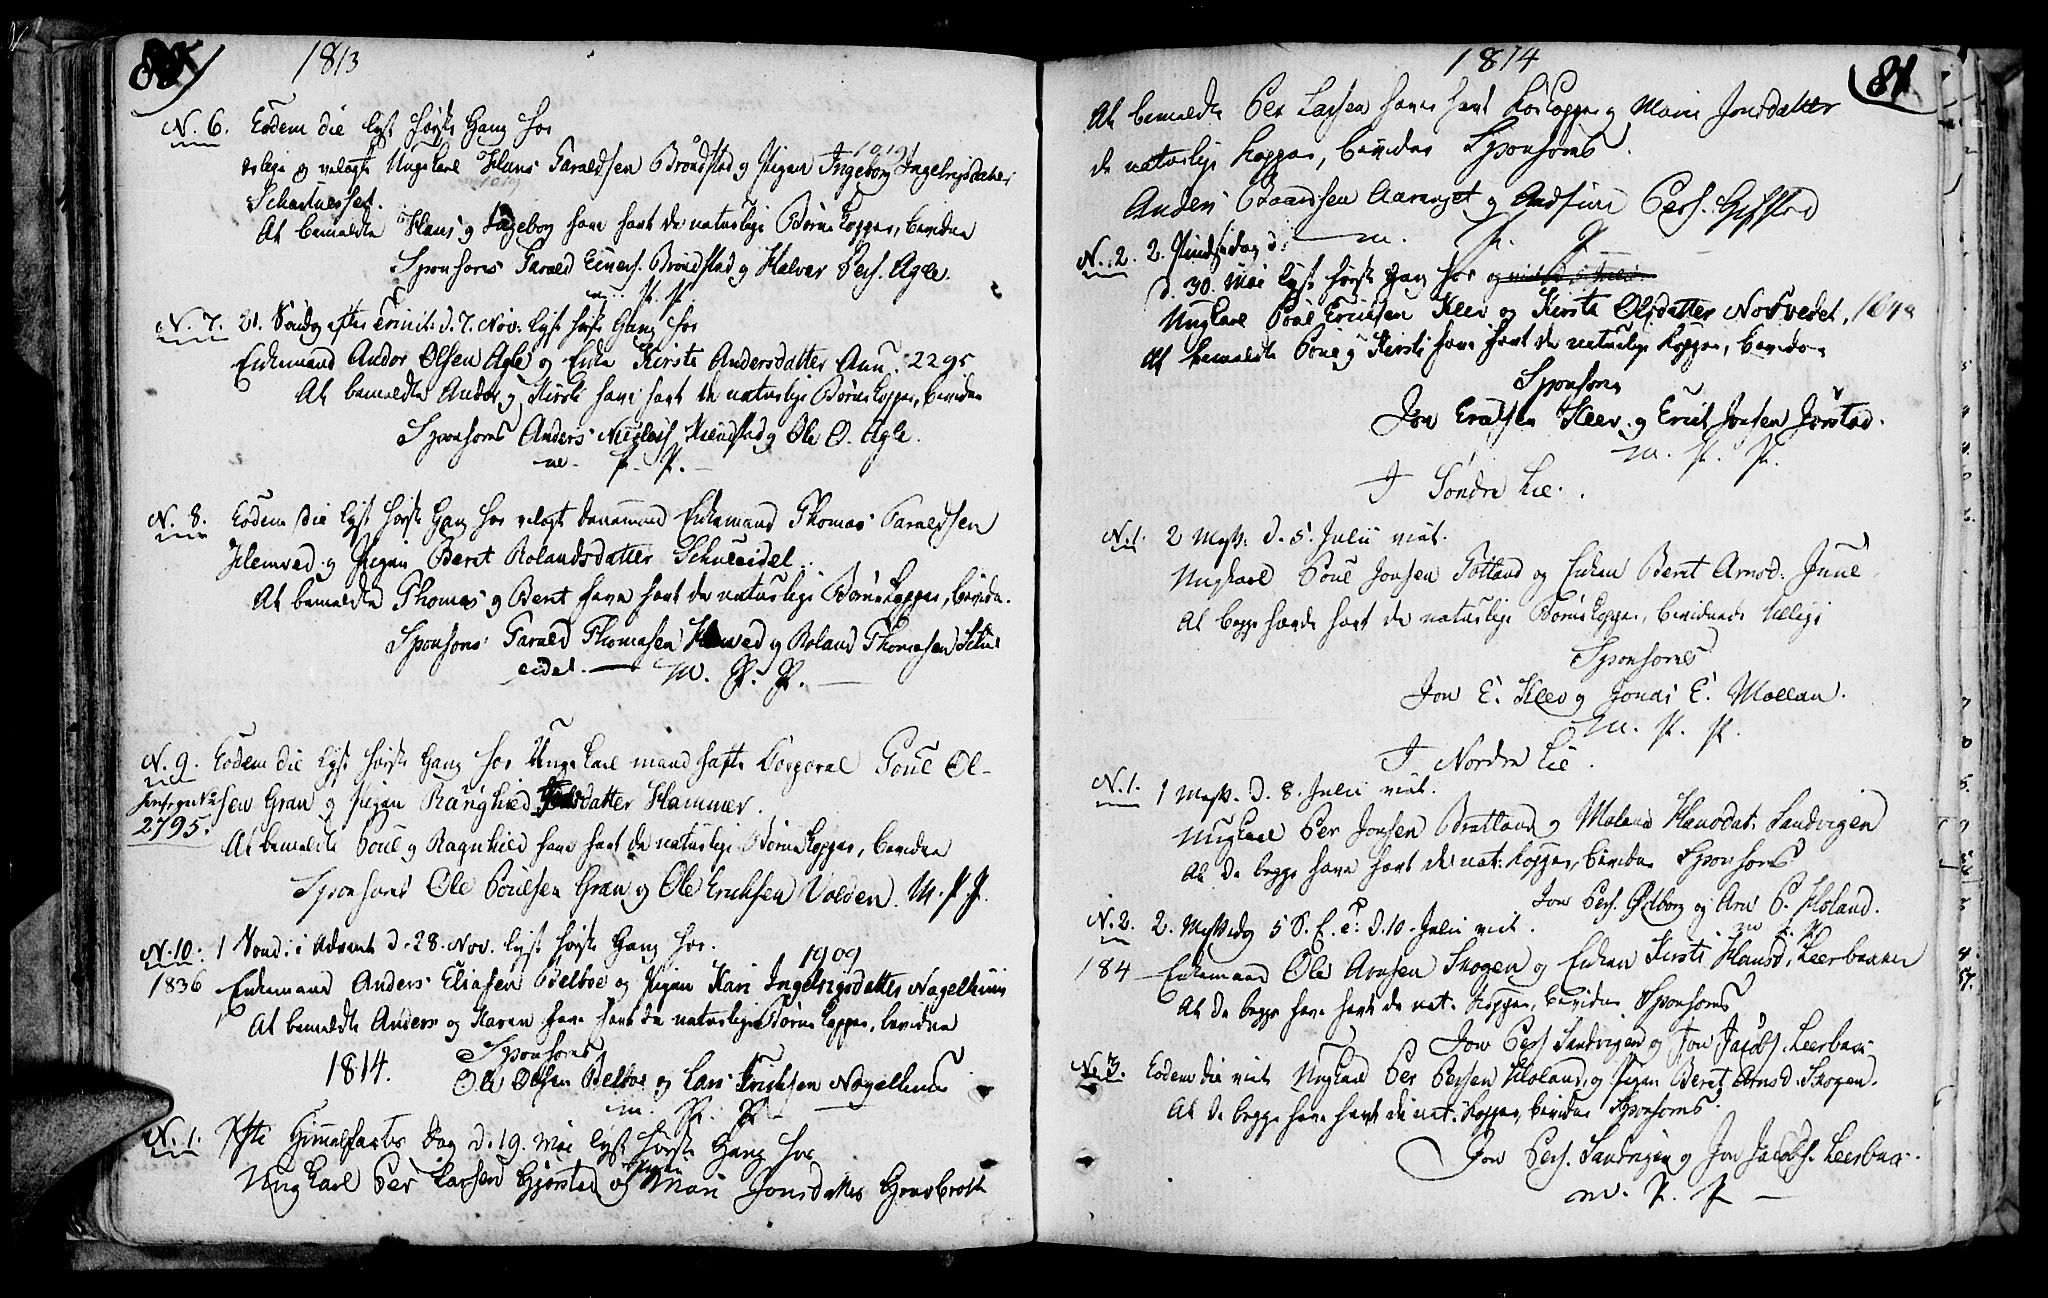 80
1813
N. 6. Eodem die lyst første Gang for
1919
ærlige og velagte Ungekarl Hans Taraldsen Brøndstad og Pigen Ingeborg Ingebrigsdatter
At bemeldte Hans og Ingebog have havt de naturlige Børne Kopper, bevidne
Sponsores Tarald Einers. Brøndstad og Halvor Pers. Agle.
m. p. p.
N. 7. 21. Sønd. efter Trinit: d. 7. Nov. lyst første Gang for
Enkemand Andor Olsen Agle og Enke Kirsti Andersdatter Aun. 2295
At bemeldte Andor og Kirsti have havt de naturlige Børne Kopper, bevidne
Sponsores Anders Nicolais og Ole O. Agle.
m. p. p.
N. 8. Eodem die lyst første Gang for velagt Dannemand Enkemand Thomas Taraldsen
Hemved og Pigen Beret Rolandsdatter
At bemeldte Thomas og Beret have havt de naturlige Børne Kopper, bevidne
Sponsores Tarald Thomasen og Roland Thomasen
eidet. m. p. p.
N. 9. Eodem die lyst første Gang for Ungekarl mandhafte Corporal Poul Ol-
sen Gran og Pigen Ranghild datter Hammer.
2795.
At bemeldte Poul og Ragnhild have havt de naturlige Børne Kopper, bevidne
Sponsores Ole Poulsen Gran og Ole Ericksen Volden. M. P. P.
N. 10. 1 Sønd: i Advent d. 28. Nov. lyst første Gang for
1909
1836 Enkemand Anders Eliasen Belboe og Pigen Kari Ingebrigsdatter Nagelhuus
At bemeldte Anders og Karen have havt de naturlige Børne Kopper, bevidne
1814. Sponsores
Ole Olsen Belboe og Lars Ericksen Nagelhuus
m. p. p.
N. 1. Himmelfarts Dag d. 19. Mai lyst første Gang for
Ungkarl Per Larsen Gjørstad og Pigen Mari Jonsdatter Grøsbrott
1814
81
At bemeldte Per Larsen have havt Kokopper og Marie Jonsdatter
de naturlige Kopper, bevidne Sponsores.
Anders Baardsen og Andfind Pers. Gifstad
m. p. p.
N. 2. 2. Pindsedag d:
d. 30. Mai lyst første Gang for
Ungkarl Poul Ericksen Kleev og Kirsti Olsdatter Nordvedet,
At bemeldte Poul og Kirsti have havt de naturlige Kopper, bevidne
Sponsores
Jon Ericksen Kleev og Erick Jonsen Jørstad.
m. p. p.
I Søndre Lie.
N. 1. 2 Mess. d. 5. Julii viet.
Ungkarl Poul Jonsen Totland og Enken Beret Arnsd. Juul
At begge havde havt de naturlige Børne Kopper, bevidnede tillige
Sponsores
Jon E. Kleev og Jonas E. Moelan.
m. p. p.
I Nordre Lie.
N. 1. 1 Mess. d. 8. Julii viet.
Ungkarl Per Jonsen Bratland og Malena Hansdat: Sandvigen
At de begge have havt de nat: Kopper, bevidne Sponsores
Jon Pers. og Arn P. Holand.
m. p. p.
N. 2. 2. Messedag 5 S. e. T: d. 10. Julii viet.
184 Enkemand Ole Arnsen Skogen og Enken Kirsti Hansd. Leerbakken
At de begge have havt de nat. Kopper, bevidne Sponsores
Jon Pers Sandvigen og Jon Jacobs. Leerbak
N. 3. Eodem die viet Ungkarl Per Persen Holand og Pigen Beret Arnsd. Skogen.
At de begge have havt de nat. Kopper, bevidne Sponsores.
Jon Pers. Sandvigen og Jon Jacobs. Leerbak.
m. p. p.